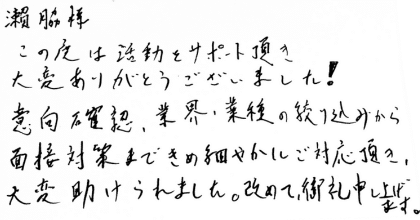 瀬脇様
この度は活動をサポート頂き
大変ありがとうございました!
意向確認、業界・業種の絞り込みから
面接対策まできめ細やかにご対応頂き、
大変助けられました。改めて、御礼申し上げます。